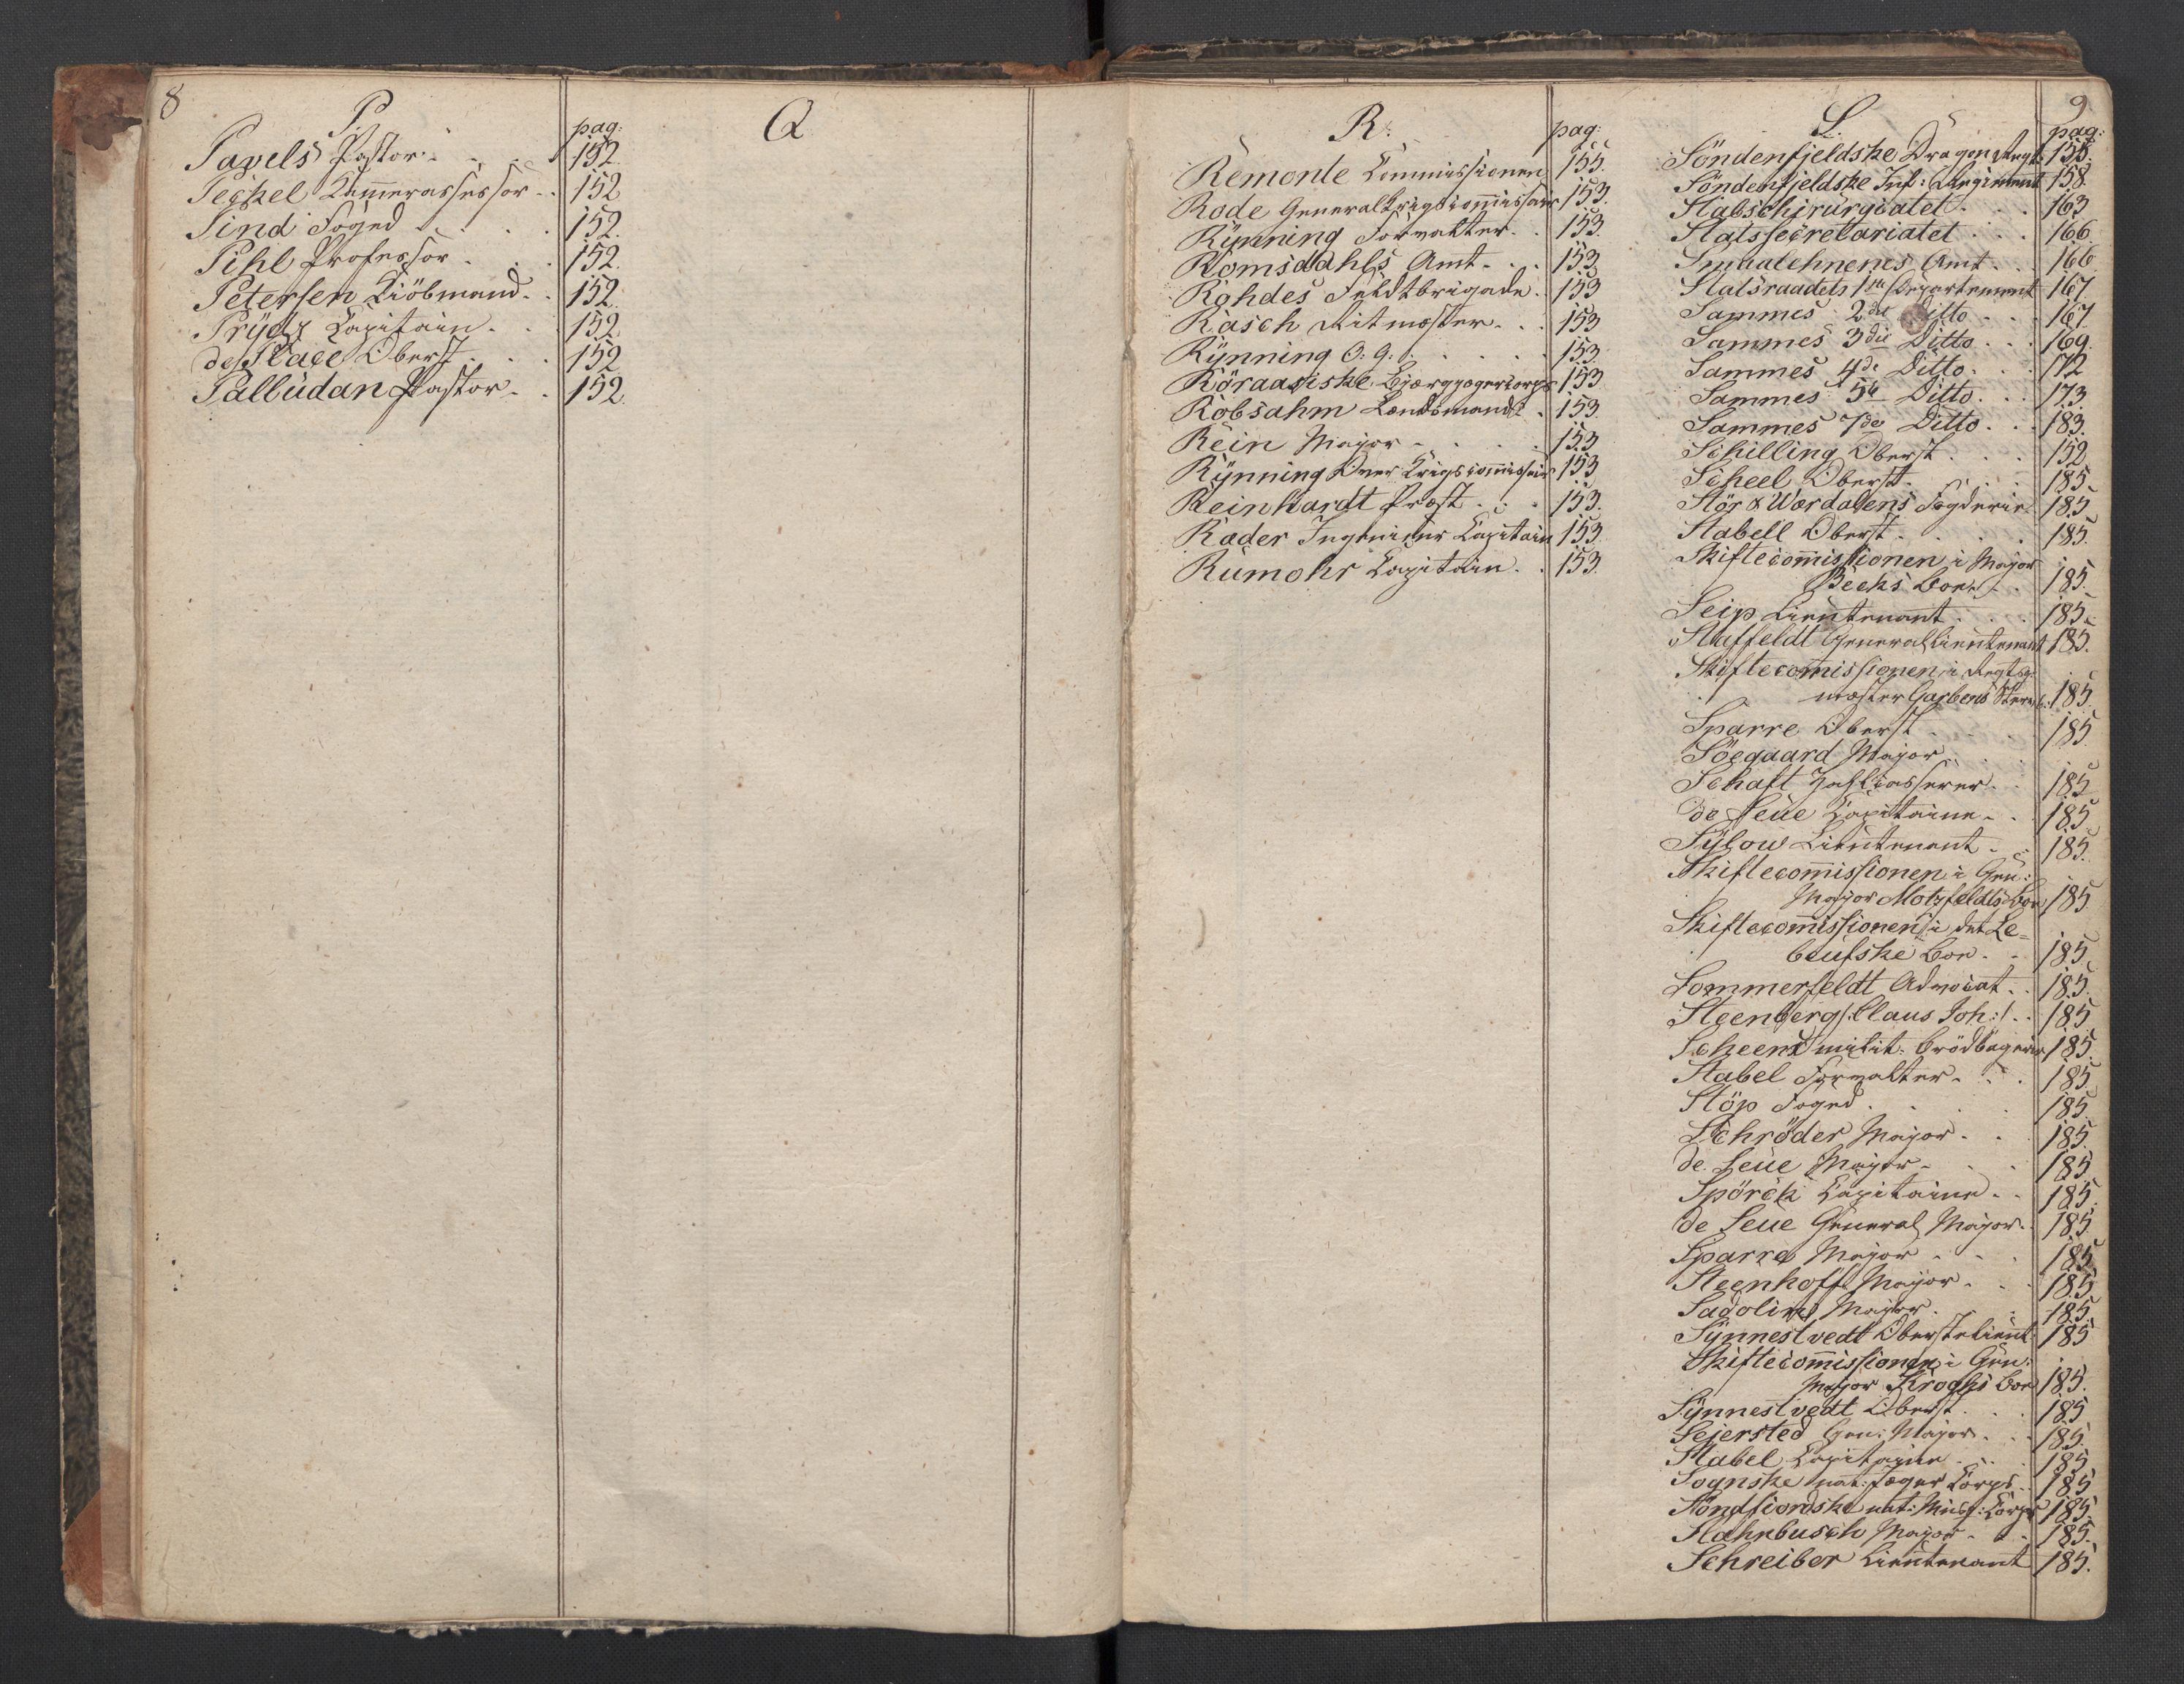 8
P.
pag:
Pavels Pastor 152.
Peckel Kammerassessor 152
Pind Foged 152.
Pihl Professor 152.
Petersen Kiöbmand 152.
Prydz Capitain 152
de Place Oberst 152
Palludan Pastor 152.
Q
R.
pag:
Remonte Commissionen 155.
Rode Generalkrigscommissair 153.
Rynning Forvalter 153.
Romsdahls Amt 153
Rohdes Feldtbrigade 153
Rasch Ritmester 153
Rynning O. G. 153.
Röraasiske Bjærgjægercorps 153
Robsahm Lændsmand 153.
Rein Major 153
Rynning Over Krigscommissair 153
Reinhardt Præst 153.
Rader Ingenieur Capitain 153
Rumohr Capitain 153.
9
S.
pag:
Söndenfjeldske Dragonregt: 155.
Söndenfjeldske Inf: Regiment 158.
Stabschirurgiatet 163
Statssecretariatet 166
Smaalehnenes Amt 166
Statsraadets 1ste Departement 167
Sammes 2det Ditto 167
Sammes 3die Ditto 169.
Sammes 4de Ditto 172
Sammes 5te Ditto 173
Sammes 7de Ditto 183.
Schilling Oberst 152
Scheel Oberst 185.
Stör & Værdalens Fogderie 185
Stabell Oberst 185.
Skiftecommissionen i Major
Becks Boe 185.
Seip Lieutenant 185.
Staffeldt Generallieutenant 185.
Skiftecommissionen i Regtsq:
mester Garbens Sterv: 185
Sparre Oberst 185
Söegaard Major
Schaft Zahlcasserer 185
de Seue Capitaine 185
Sylow Lieutenant 185.
Skiftecommissionen i Gen:
Major Motzfeldts Boe 185
Skiftecommissionen i det Le=
beufske Boe 185.
Sommerfeldt Advocat 185.
Steenberg /:Claus Joh:/ 185
Scheens milit: Brödbageri 185.
Stabel Forvalter 185
Stöp Foged 185.
Schröder Major 185.
de Seue Major 185
Spörck Capitaine 185.
de Seue General Major 185
Sparre Major 185.
Steenhoff Major 185.
Sadolin Major 185.
Synnestvedt Oberstelieut: 185
Skiftecommissionen i Gen:
Major Kroghs Boe 185.
Synnestvedt Oberst 185
Sejersted Gen: Major 185.
Stabel Capitaine 185
Sognske nat: Jæger Corps 185
Söndfiordske nat: Musq: Corps 185.
Hahnbusch Major 185.
Schreiber Lieutenant 185.